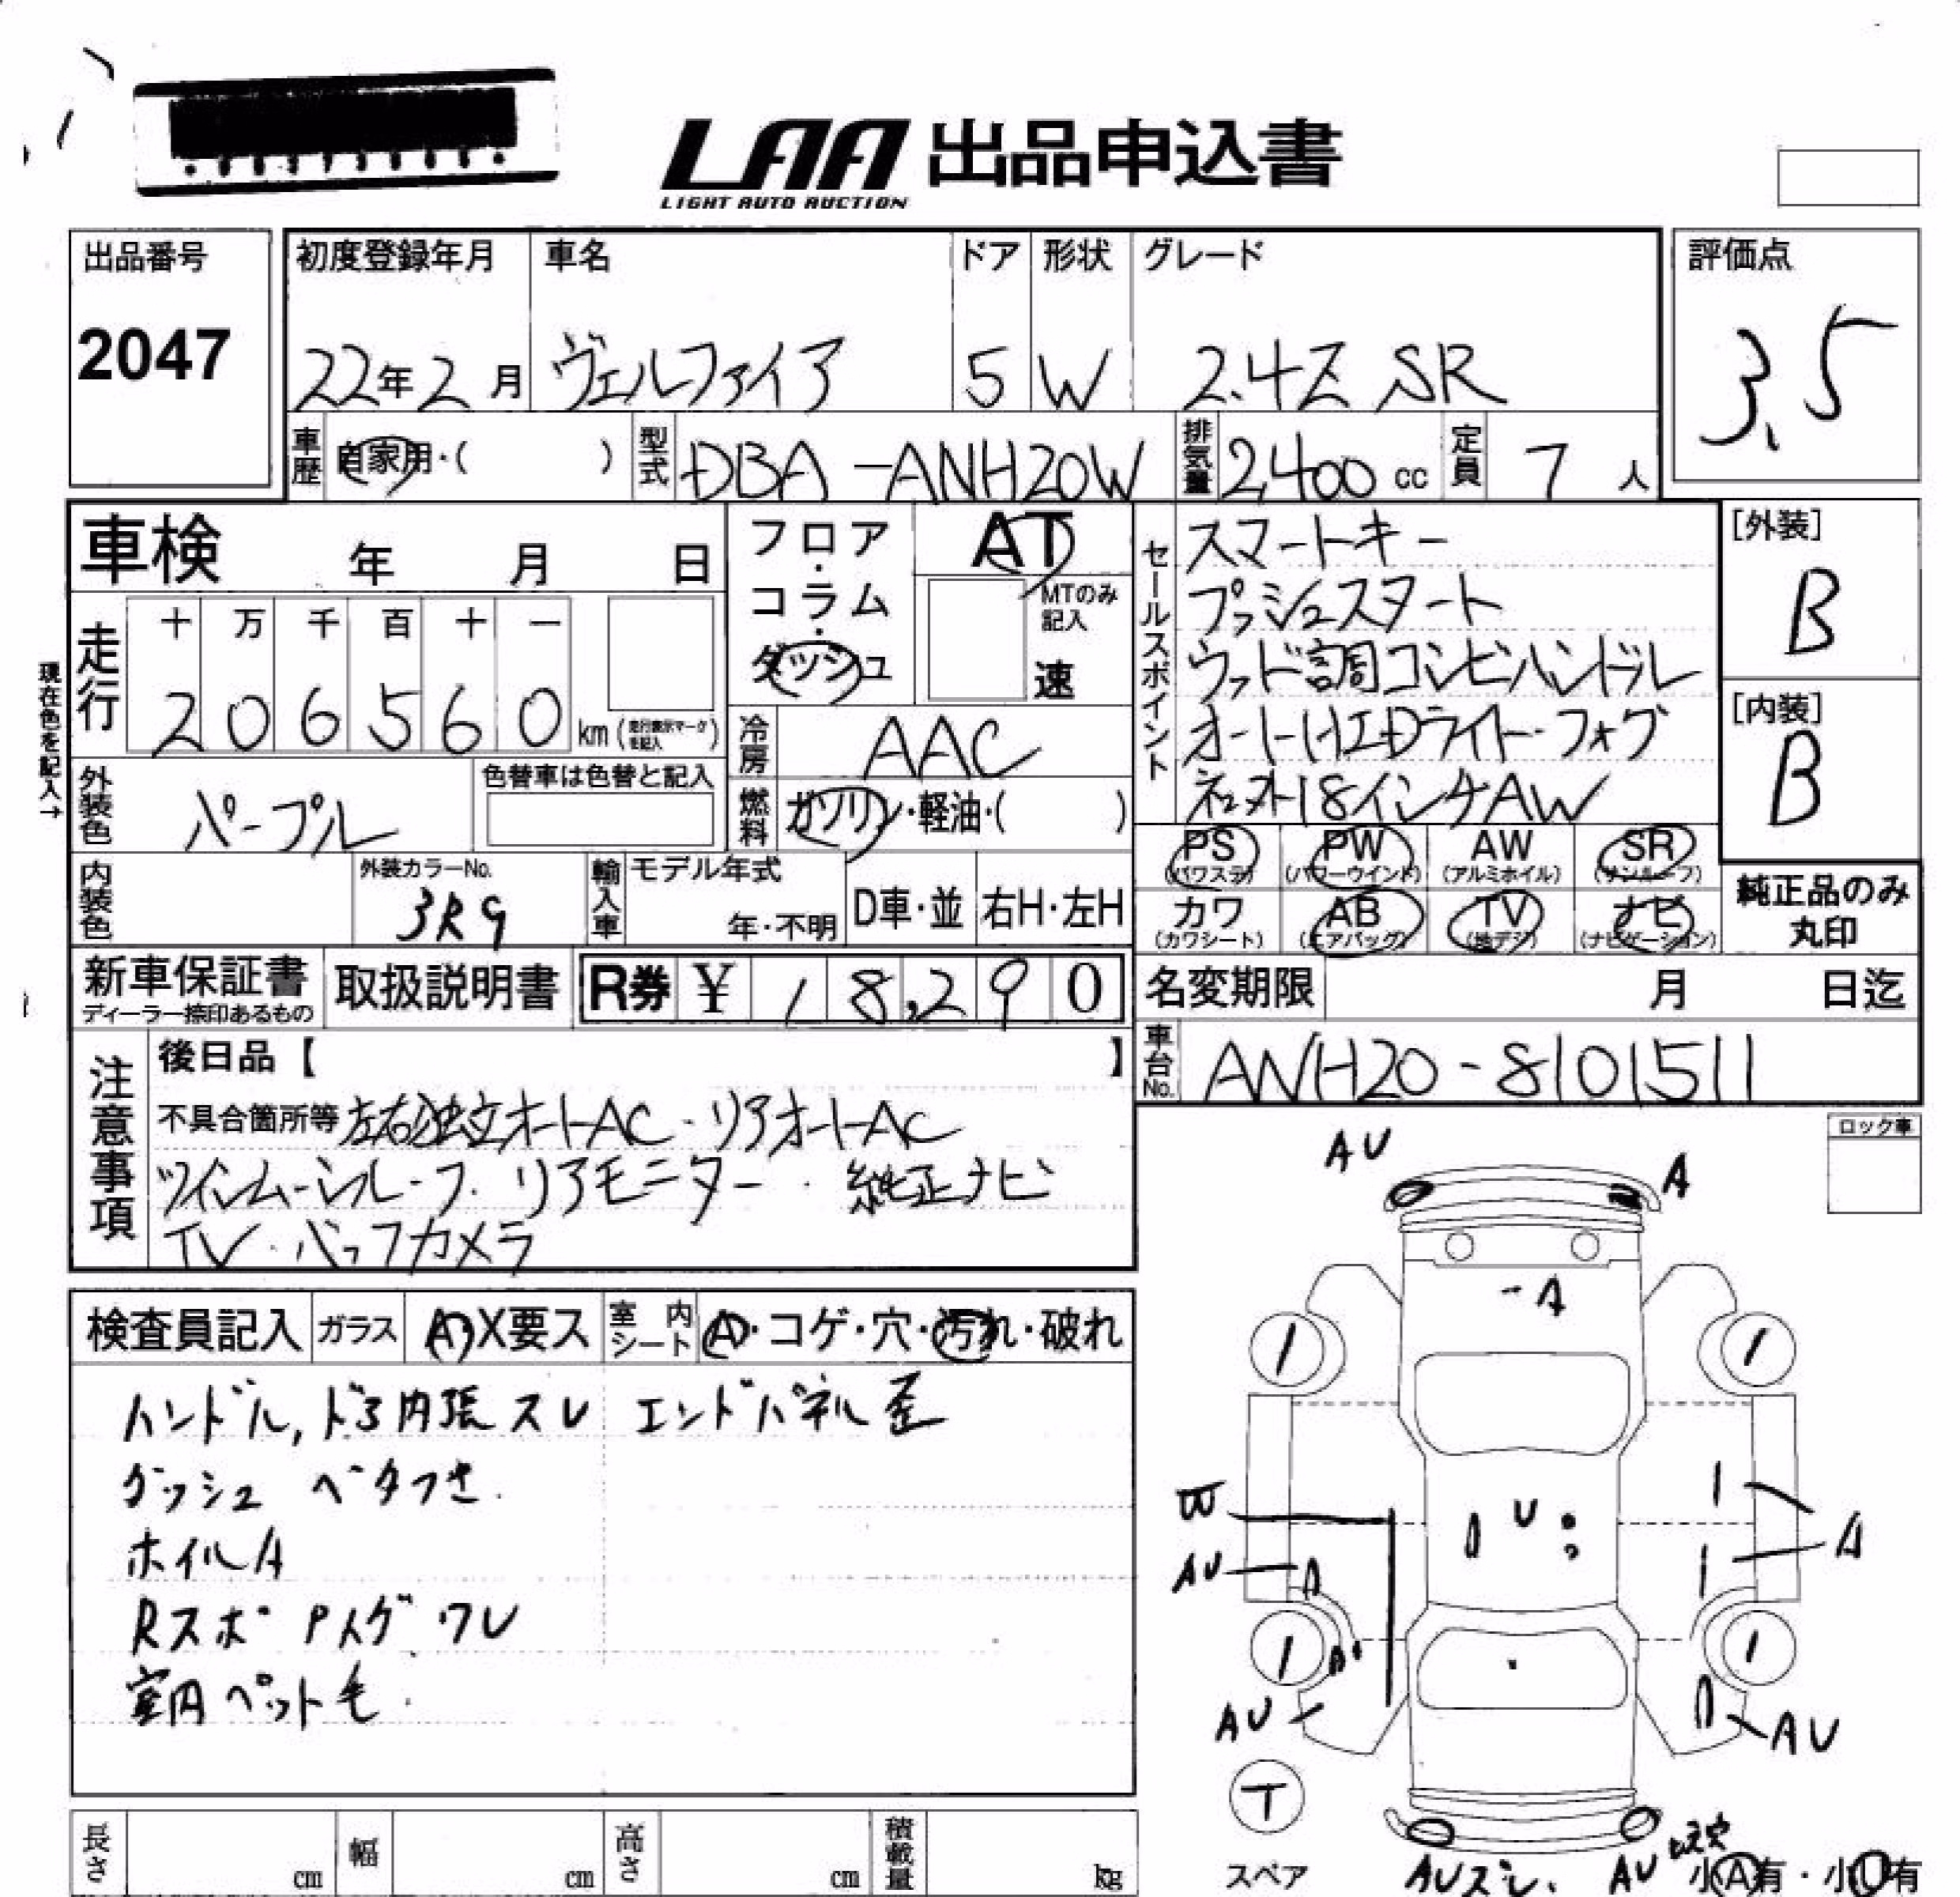 LAA 出品申込書
LIGHT AUTO AUCTION
出品番号
2047
初度登録年月 車名 ドア 形状 グレード
22年2月 ヴェルファイア 5 W 2.4Z SR
評価点
3.5
車歴 自家用・( ) 型式 DBA-ANH20W 排気量 2,400 cc 定員 7 人
車検 年 月 日
フロア・コラム・ダッシュ
AT
MTのみ記入
速
現在色を記入→
走行 十 万 千 百 十 一
2 0 6 5 6 0 km
冷房 AAC
外装色 パープル
色替車は色替と記入
燃料 ガソリン・軽油・( )
内装色
外装カラーNo.
3R9
輸入車 モデル年式
年・不明
D車・並 右H・左H
セールスポイント
スマートキー
プッシュスタート
ウッド調コンビハンドル
オートHIDライト・フォグ
18インチAW
[外装]
B
[内装]
B
PS (パワステ) PW (パワーウインド) AW (アルミホイル) SR (サンルーフ)
カワ (カワシート) AB (エアバッグ) TV (地デジ) ナビ (ナビゲーション)
純正品のみ
丸印
新車保証書
ディーラー捺印あるもの
取扱説明書
R券 ¥ 18,290
名変期限 月 日迄
車台No. ANH20-8101511
注意事項
後日品【 】
不具合箇所等 左右独立オートAC・リアオートAC
ツインムーンルーフ・リアモニター・純正ナビ
TV・バックカメラ
ロック車
検査員記入 ガラス A・X要ス 室内シート A・コゲ・穴・汚れ・破れ
ハンドル, ドア内張スレ エンドパネル歪
ダッシュ ベタつき
ホイルA
Rスポ ワレ
室内ペット毛
AU
A
-A
W
AU
U
A
AU
AU
T
スペア
AUズレ
AU
小A有・小U有
長さ cm 幅 cm 高さ cm 積載量 kg